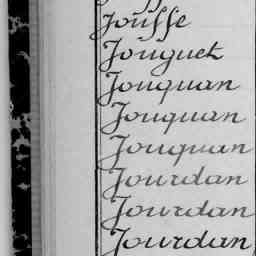 Jousse
Jouguet
Jouquan
Jouquan
Jouquan
Jourdan
Jourdan
Jourdan